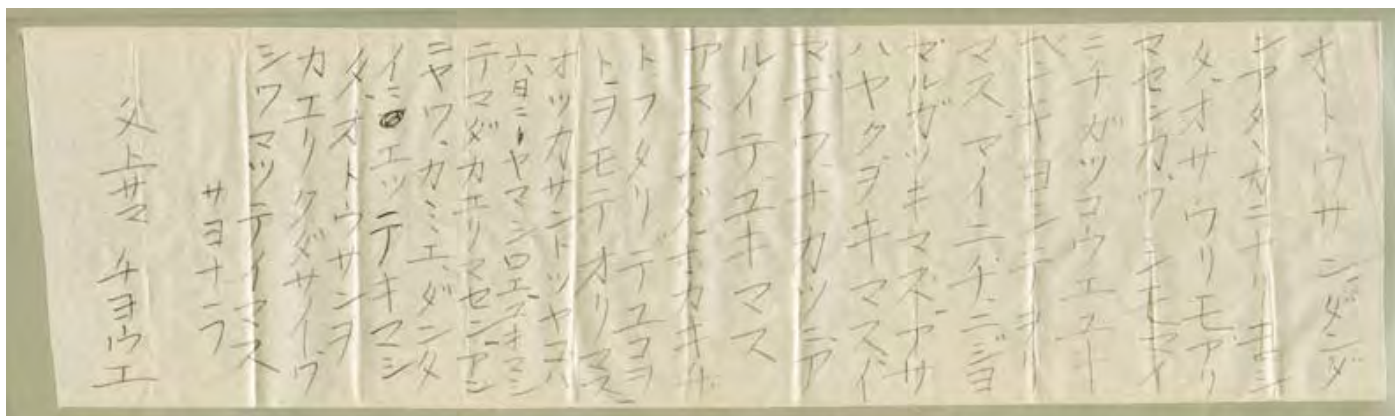 オトウサンダンダ
ンアタヽカニナリモシ
タ、オサワリモアリ
マセンカ、ワシモマイ
ニチガツコウエユキ
ベンキヨシテヲリ
マス、マイニチ、ニジヨ
マルガツキマス、アサ
ハヤクヲキマスイ
マデワナカツテア
ルイテユキマス
アマカズモカキナ
トフタリデユコヲ
トヲモテオリマス
オツカサントツヤコハ
六日ニヤマシロエヱオマシ
テマダカエリマセンアシ
ニヤワ、カミエ、ダンタ
イニエツテキマシ
タ、オトウサンヲ
カエリクダサイヲ
シウマツテイマス
サヨナラ
父上サマ チヨウエ